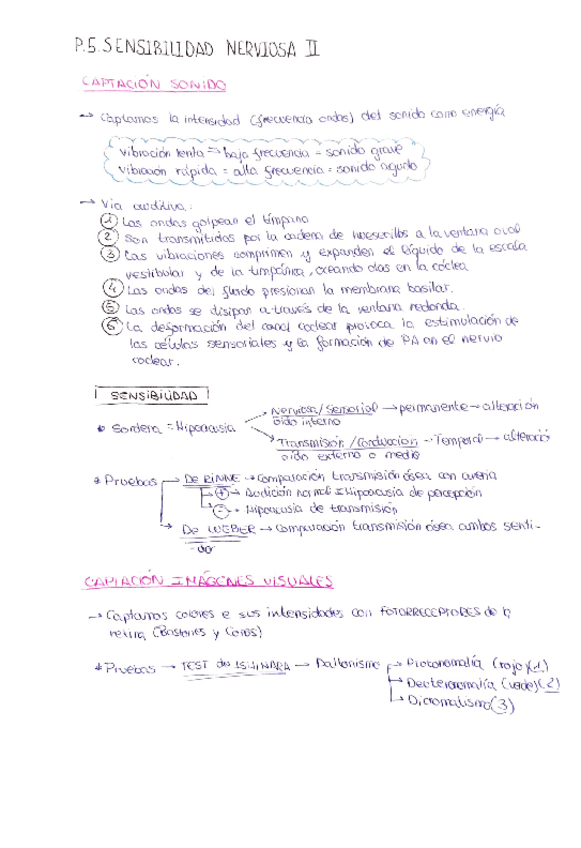 P.5. SENSIBILIDAD NERVIOSA II
CAPTACIÓN SONIDO
→ Captamos la intensidad (frecuencia ondas) del sonido como energía
vibración lenta = baja frecuencia = sonido grave
vibración rápida = alta frecuencia = sonido agudo
→ Via auditiva:
① Las ondas golpean el tímpano
② Son transmitidas por la cadena de huesecillos a la ventana oval
③ Las vibraciones comprimen y expanden el líquido de la escala
vestibular y de la timpánica, creando olas en la cóclea
④ Las ondas del fluido presionan la membrana basilar.
⑤ Las ondas se disipan a través de la ventana redonda.
⑥ La deformación del canal coclear provoca la estimulación de
las células sensoriales y la formación de PA en el nervio
coclear.
SENSIBILIDAD
* Sordera = Hipoacusia
→ Nerviosa / Sensorial → permanente → alteración
oído interno
→ Transmisión / Conducción → Temporal → alteració
oído externo o medio
* Pruebas → De RINNE → Comparación transmisión ósea con aérea
→ ⊕ → Audición normal = Hipoacusia de percepción
→ ⊖ → Hipoacusia de transmisión
→ De WEBER → Comparación transmisión ósea ambos senti-
do
CAPTACIÓN IMÁGENES VISUALES
→ Captamos colores e sus intensidades con FOTORRECEPTORES de la
retina (Bastones y Conos)
* Pruebas → TEST de ISHIHARA → Daltonismo → Protonomalía (rojo)(1)
→ Deuteronomalía (verde)(2)
→ Dicromatismo(3)